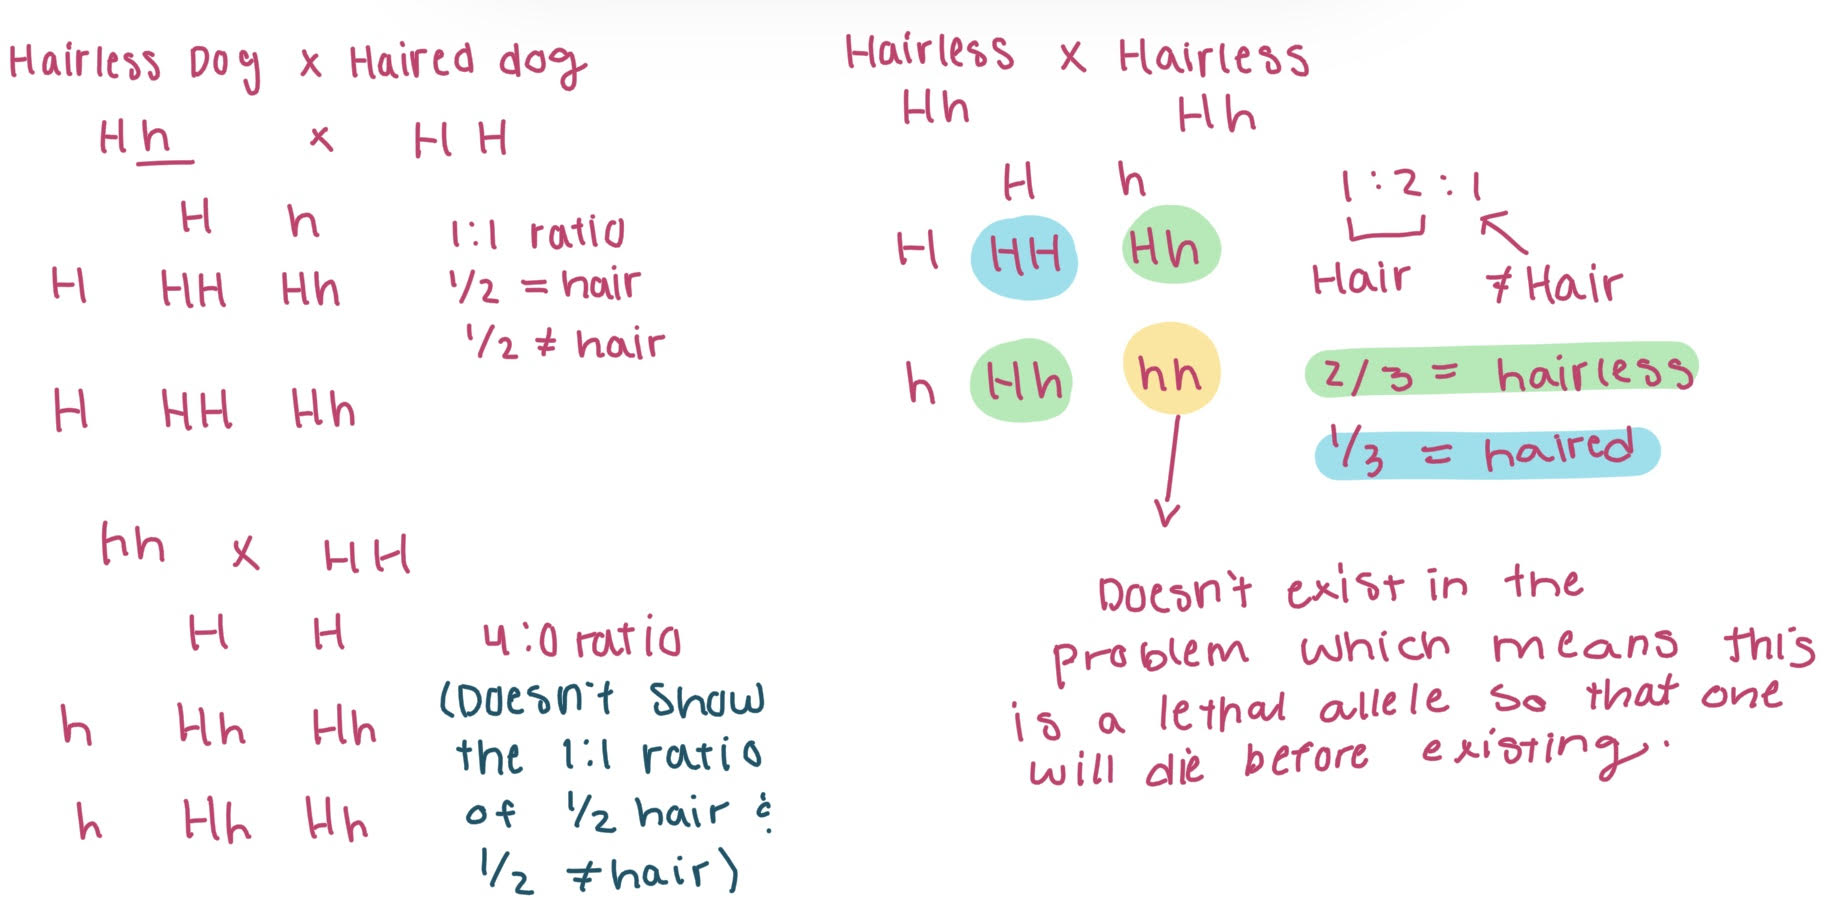 Hairless Dog x Haired dog
Hh x HH
H h
H HH Hh
H HH Hh
1:1 ratio
1/2 = hair
1/2 ≠ hair
hh x HH
H H
h Hh Hh
h Hh Hh
4:0 ratio
(Doesn't show
the 1:1 ratio
of 1/2 hair &
1/2 ≠ hair)
Hairless x Hairless
Hh Hh
H h
H HH Hh
h Hh hh
1:2:1
Hair ≠ Hair
2/3 = hairless
1/3 = haired
Doesn't exist in the
problem which means this
is a lethal allele so that one
will die before existing.